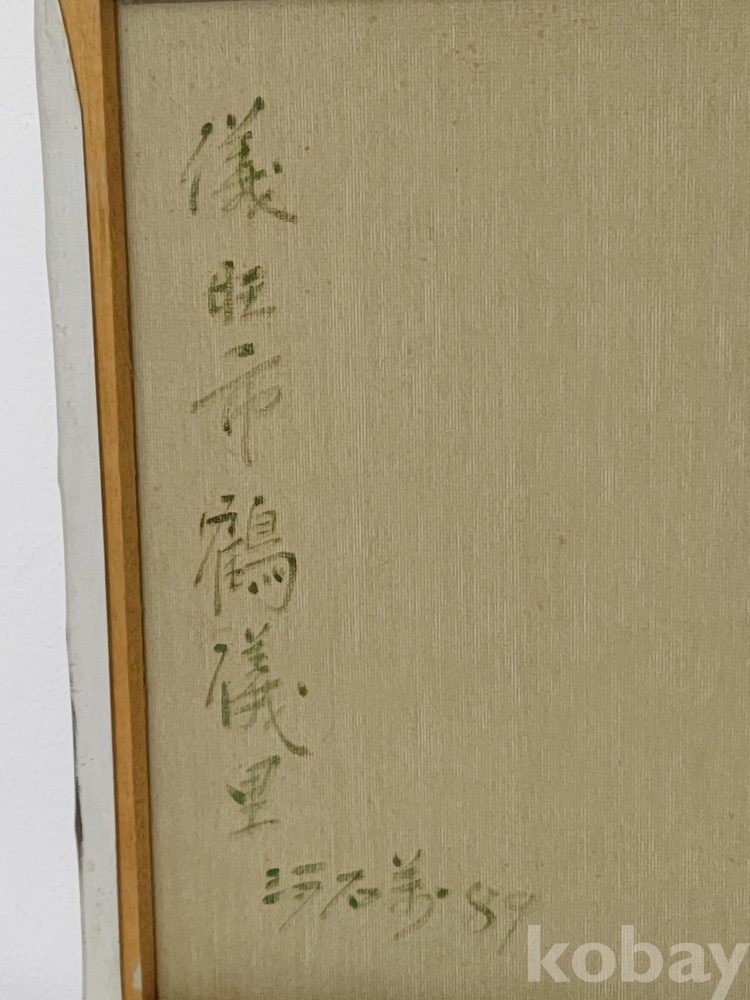 儀旺市 鶴儀里
石萬 89
kobay